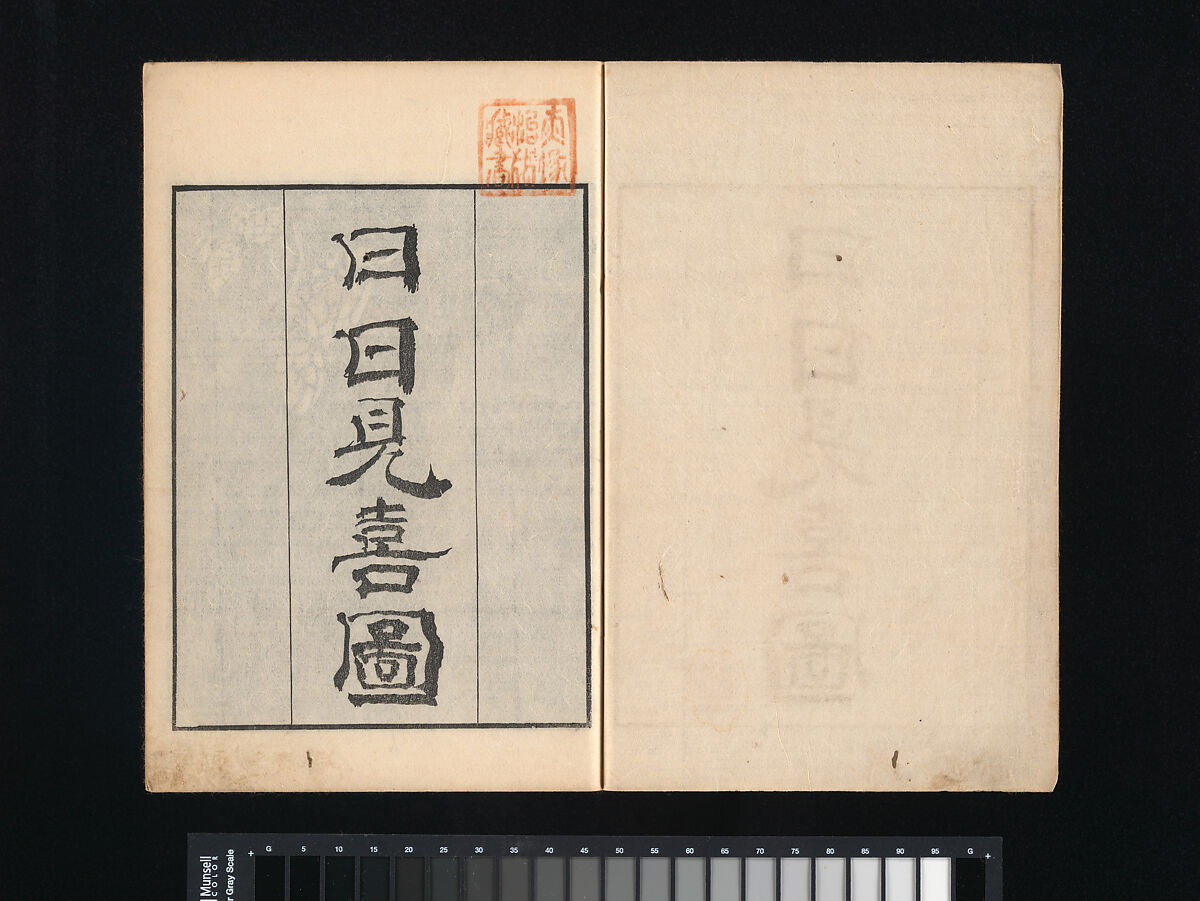 日日見喜圖
藏書
Munsell
COLOR
Gray Scale
G 5 10 15 20 25 30 35 40 45 50 55 60 65 70 75 80 85 90 95 G